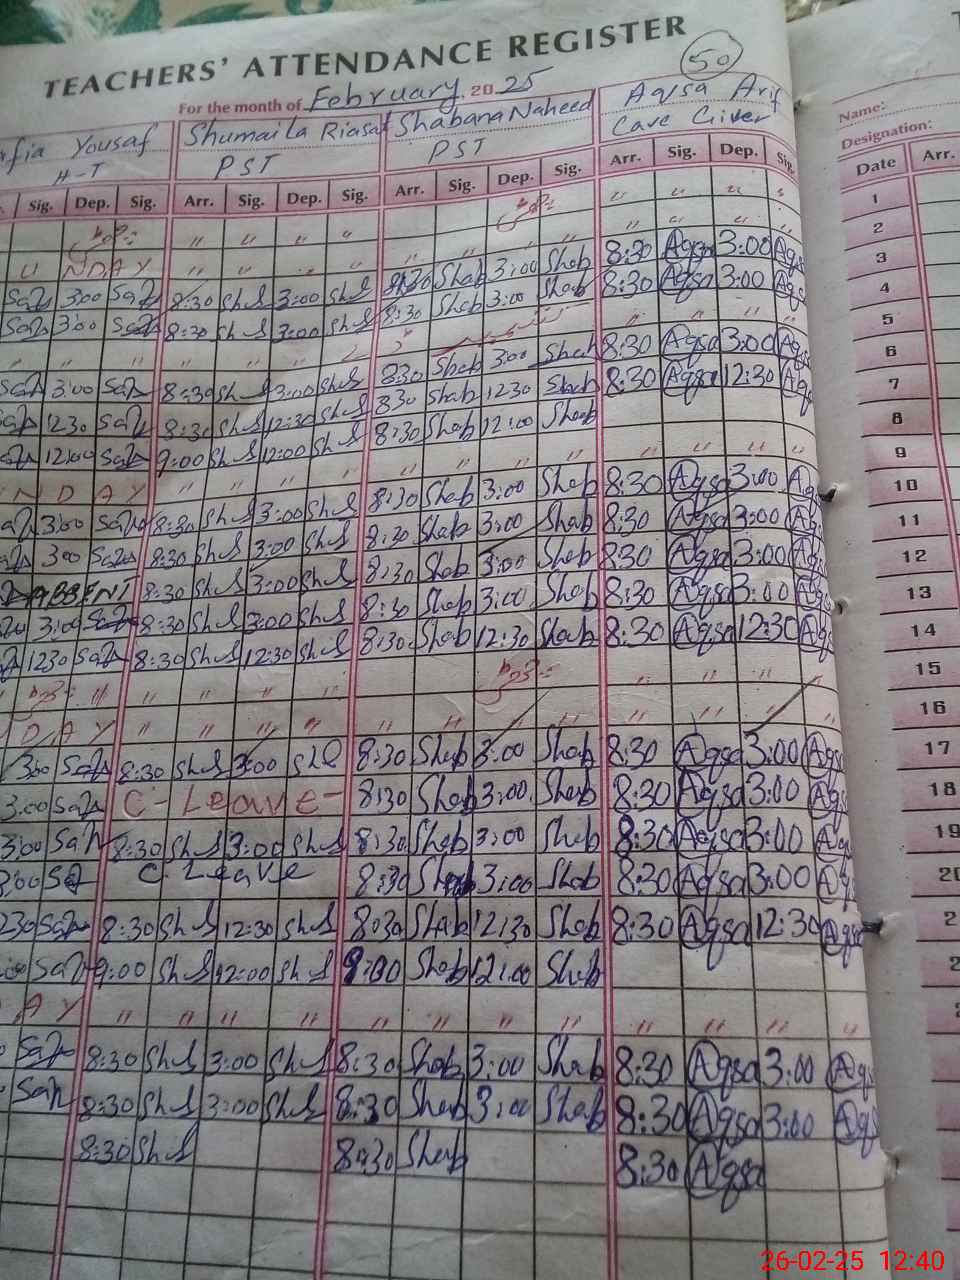 TEACHERS' ATTENDANCE REGISTER
50
For the month of February, 20 25
Yousaf Shumaila Riasat Shabana Naheed Aqsa Arif
H-T PST PST Care Giver
Sig. Dep. Sig. Arr. Sig. Dep. Sig. Arr. Sig. Dep. Sig. Arr. Sig. Dep. Sig.
" " " " " " " "
U NDAY " " " " " " " "
San 3:00 San 8:30 ShS 3:00 ShS 8:30 Shab 3:00 Shab 8:30 Aqsa 3:00 Aqs
San 3:00 San 8:30 ShS 3:00 ShS 8:30 Shab 3:00 Shab 8:30 Aqsa 3:00 Aqs
" " " " " " " " " "
San 3:00 San 8:30 ShS 3:00 ShS 8:30 Shab 3:00 Shab 8:30 Aqsa 3:00 Aqs
San 12:30 San 8:30 ShS 12:30 ShS 8:30 Shab 12:30 Shab 8:30 Aqsa 12:30 Aq
San 12:00 San 9:00 ShS 12:00 ShS 8:30 Shab 12:00 Shab
N D A Y " " " " " " " " " " " "
San 3:00 San 8:30 ShS 3:00 ShS 8:30 Shab 3:00 Shab 8:30 Aqsa 3:00 Aq
San 3:00 San 8:30 ShS 3:00 ShS 8:30 Shab 3:00 Shab 8:30 Aqsa 3:00 Aq
ABSENT 8:30 ShS 3:00 ShS 8:30 Shab 3:00 Shab 8:30 Aqsa 3:00 Aq
San 3:00 San 8:30 ShS 3:00 ShS 8:30 Shab 3:00 Shab 8:30 Aqsa 3:00 Aq
San 12:30 San 8:30 ShS 12:30 ShS 8:30 Shab 12:30 Shab 8:30 Aqsa 12:30 Aq
" " " " " " " " "
D A Y " " " " " " " " " " " "
3:00 San 8:30 ShS 3:00 ShS 8:30 Shab 3:00 Shab 8:30 Aqsa 3:00 Aqs
3:00 San C-Leave- 8:30 Shab 3:00 Shab 8:30 Aqsa 3:00 Aqs
3:00 San 8:30 ShS 3:00 ShS 8:30 Shab 3:00 Shab 8:30 Aqsa 3:00 Aqs
3:00 San C-Leave 8:30 Shab 3:00 Shab 8:30 Aqsa 3:00 Aq
230 San 8:30 ShS 12:30 ShS 8:30 Shab 12:30 Shab 8:30 Aqsa 12:30 Aqsa
San 9:00 ShS 12:00 ShS 9:00 Shab 12:00 Shab
A Y " " " " " " " " " " " "
San 8:30 ShS 3:00 ShS 8:30 Shab 3:00 Shab 8:30 Aqsa 3:00 Aqs
San 8:30 ShS 3:00 ShS 8:30 Shab 3:00 Shab 8:30 Aqsa 3:00 Aqs
8:30 ShS 8:30 Shab 8:30 Aqsa
Name:
Designation:
Date Arr.
1
2
3
4
5
6
7
8
9
10
11
12
13
14
15
16
17
18
19
26-02-25 12:40